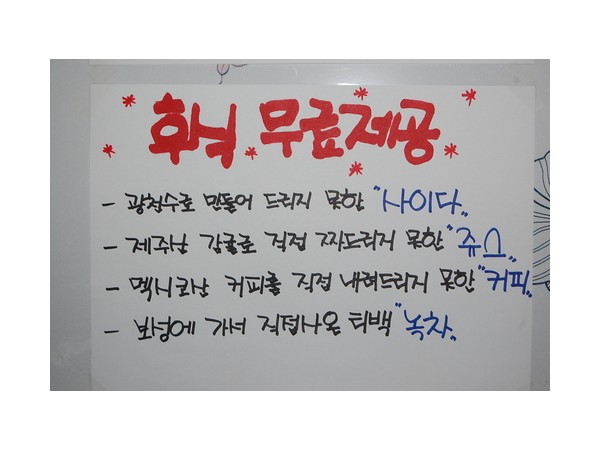 후식 무료제공
- 광천수로 만들어 드리지 못한 "사이다"
- 제주산 감귤로 직접 짜드리지 못한 "쥬스"
- 멕시코산 커피를 직접 내려드리지 못한 "커피"
- 보성에 가서 직접사온 티백 "녹차"